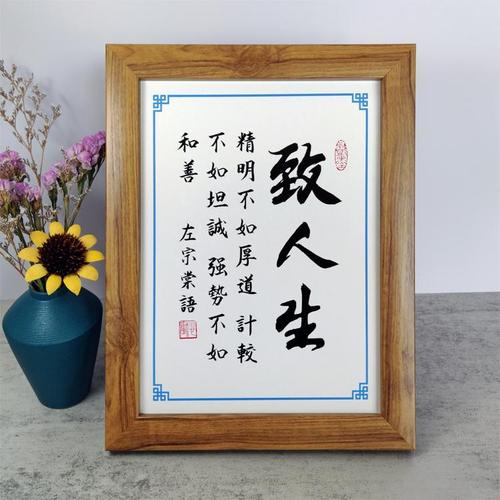 致人生
精明不如厚道 計較
不如坦誠 强勢不如
和善 左宗棠語